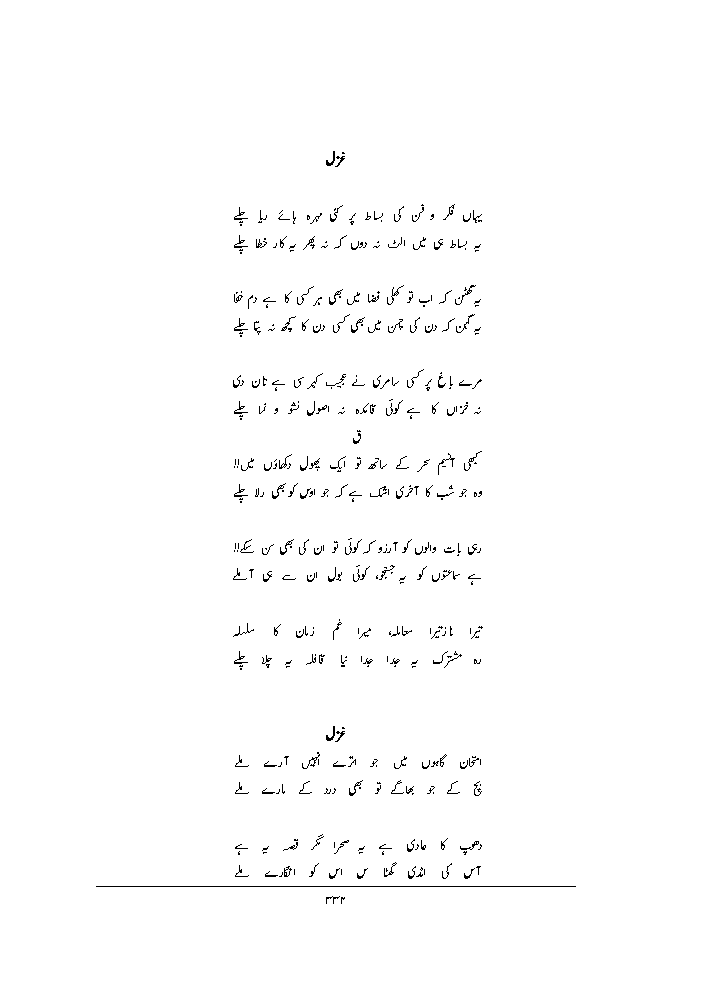 غزل
یہاں فکر و فن کی بساط پر کئی مہرہ ہائے ریا چلے
یہ بساط ہی میں الٹ نہ دوں کہ نہ پھر یہ کار خطا چلے
یہ گھٹن کہ اب تو کھلی فضا میں بھی ہر کسی کا ہے دم خفا
یہ گہن کہ دن کی چمن میں بھی کسی دن کا کچھ نہ پتا چلے
مرے باغ پر کسی سامری نے عجیب کہر سی ہے تان دی
نہ خزاں کا ہے کوئی قائدہ نہ اصول نشو و نما چلے
ق
کبھی آنسیم سحر کے ساتھ تو ایک پھول دکھاؤں میں!!
وہ جو شب کا آخری اشک ہے کہ جو اوس کو بھی رلا چلے
رہی بات والوں کو آرزو کہ کوئی تو ان کی بھی سن سکے!!
ہے ساعتوں کو یہ جستجو، کوئی بول ان سے ہی آملے
تیرا نازتیرا معاملہ، میرا غم زمان کا سلسلہ
رہ مشترک یہ جدا جدا نیا قافلہ یہ چلا چلے
غزل
امتحان گاہوں میں جو اترے انہیں آرے ملے
بچ کے جو بھاگے تو بھی درد کے مارے ملے
دھوپ کا عادی ہے یہ صحرا مگر قصہ یہ ہے
آس کی انڈی گھٹا س اس کو انگارے ملے
۳۳۲